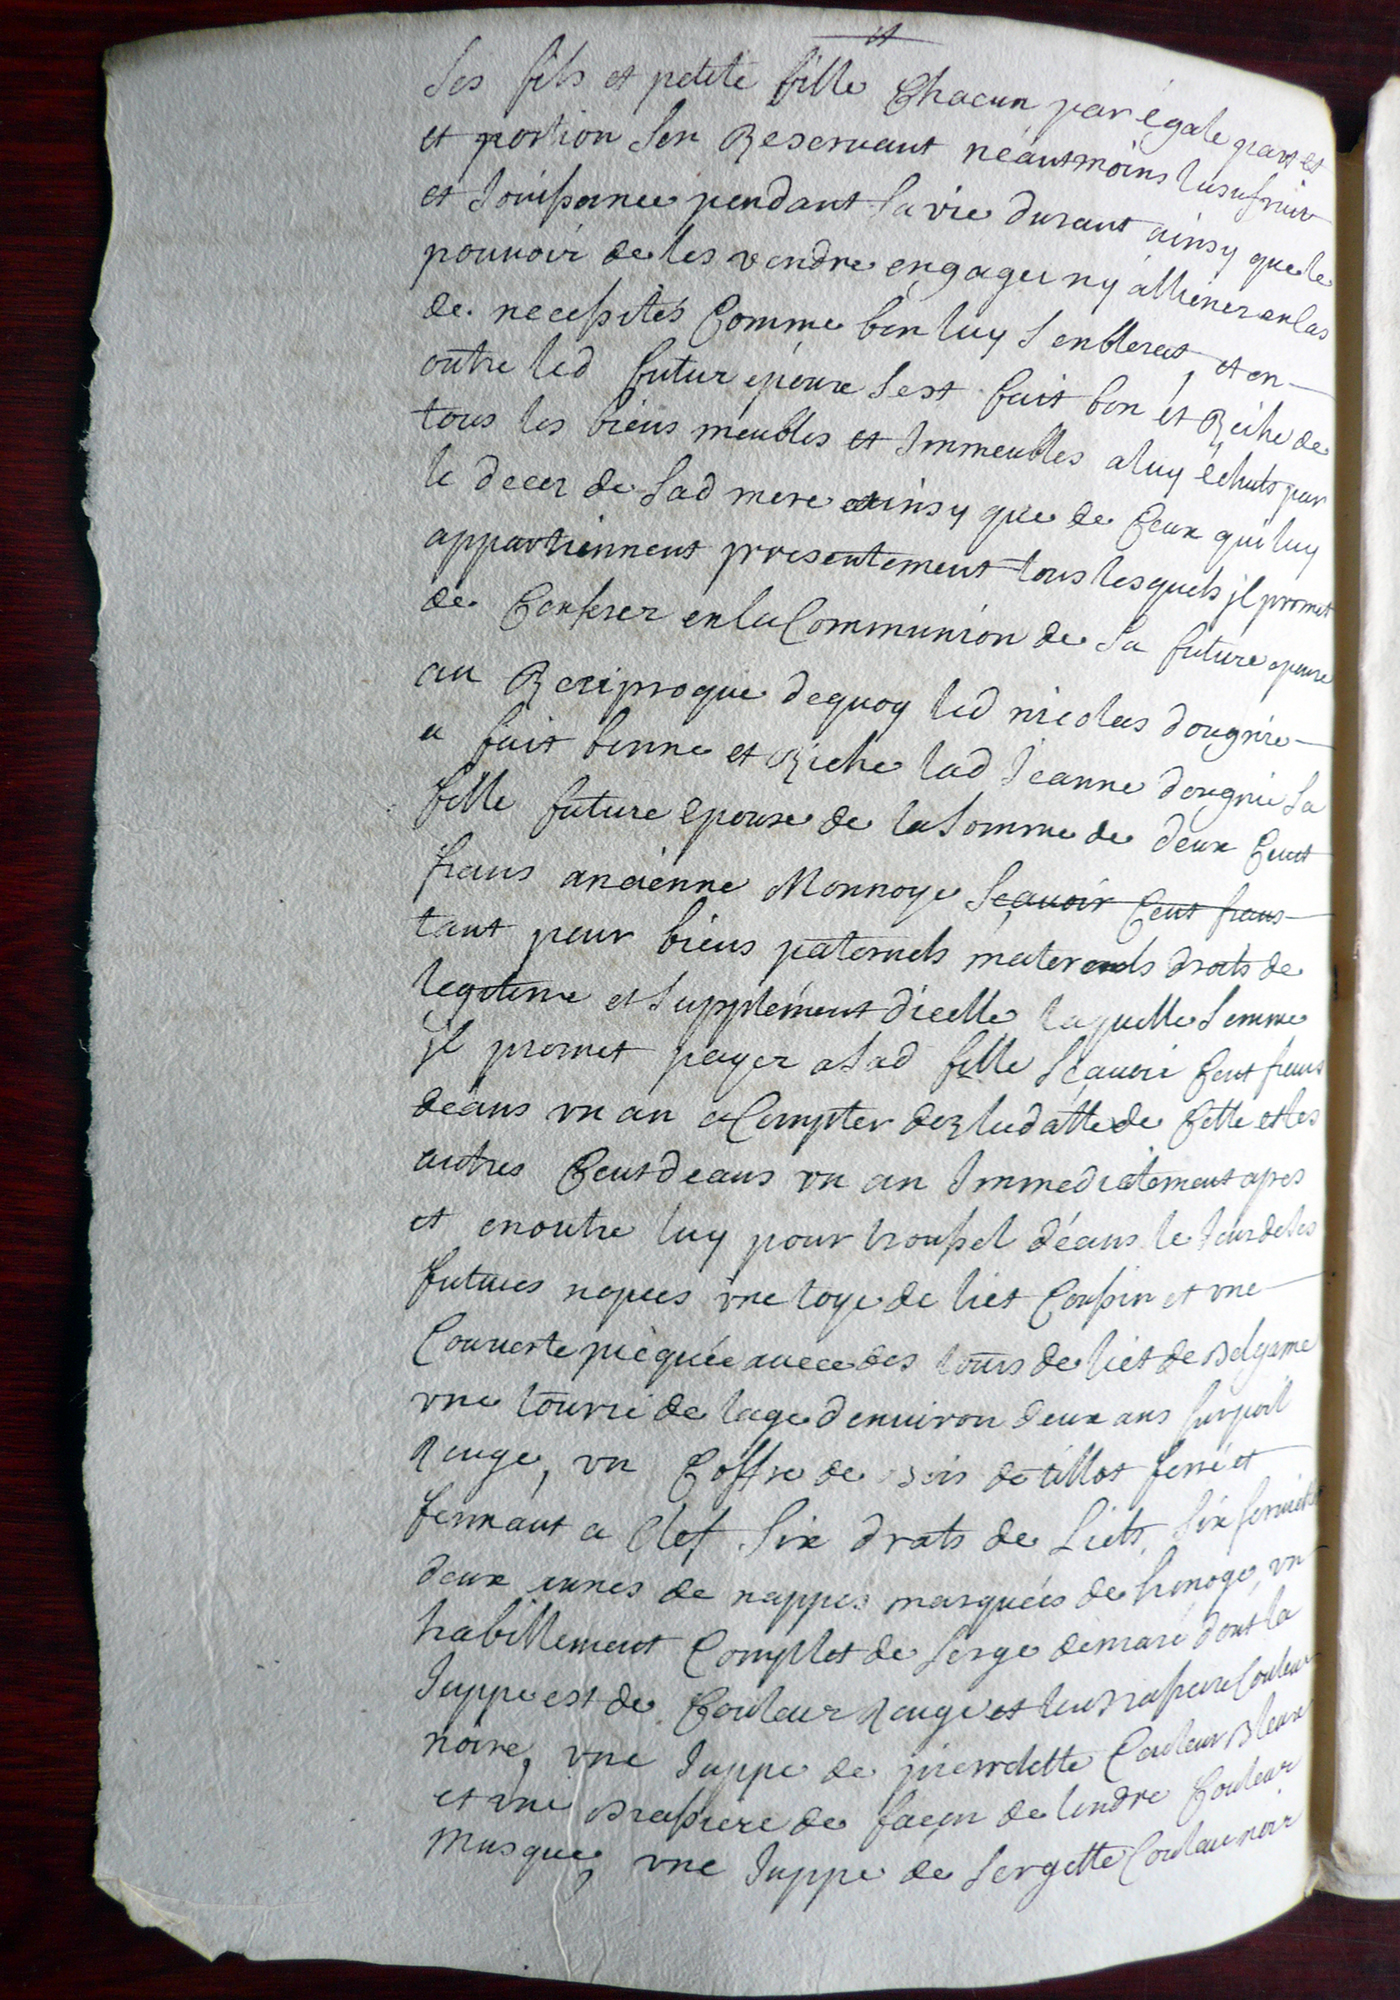 et
ses fils et petite fille Chacun par égale part et
et portion sen Reservant néautmoins lusufruit
et Jouissance pendant sa vie durant ainsy que le
pouvoir de les vendre engager ny alliener en cas
de necessités Comme bon luy semblerat, et en
outre led futur époux sest fait bon et Riche de
tous les biens meubles et Immeubles a luy échuts par
le decez de sad mere ainsy que de Ceux qui luy
appartiennent presentement tous lesquels jl promet
de Conferer en la Communion de sa future epouse
au Reciproque dequoy led nicolas dougnie
a fait bonne et Riche lad Jeanne dougnie sa
fille future epouse de la somme de deux Cent
frans ancienne Monnoye scavoir Cent frans
tant pour biens paternels maternels droits de
legitime et supplément dicelle laquelle somme
jl promet payer a sad fille scavoir Cent frans
deans vn an a Compter dez la datte de Cette et les
autres Cent deans vn an Immediatement apres
et en outre luy pour troussel déans le Jour de ses
futures nopces vne toye de lict Coussin et vne
Couverte picquée avec des tours de lict de Belgame
vne tourie de lage denviron deux ans sur poil
Rouge, vn Coffre de Bois de tillot ferré et
fermant a Clef Six drats de Licts, Six serviettes
deux aunes de nappes marquées de lienoge, vn
habillement Complet de serge demare dont la
Juppe est de Couleur Rouge et la Brassiere Couleur
noire, vne Juppe de pierrdette Couleur Bleuve
et vne Brassiere de façon de londre Couleur
Musque, vne Juppe de sergette Couleur noir